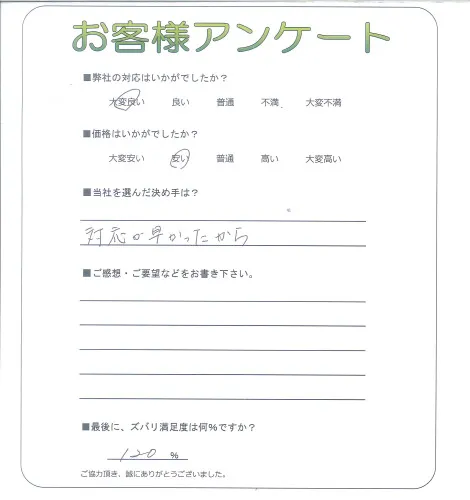 お客様アンケート
■弊社の対応はいかがでしたか？
大変良い 良い 普通 不満 大変不満
■価格はいかがでしたか？
大変安い 安い 普通 高い 大変高い
■当社を選んだ決め手は？
対応が早かったから
■ご感想・ご要望などをお書き下さい。
■最後に、ズバリ満足度は何%ですか？
120 %
ご協力頂き、誠にありがとうございました。